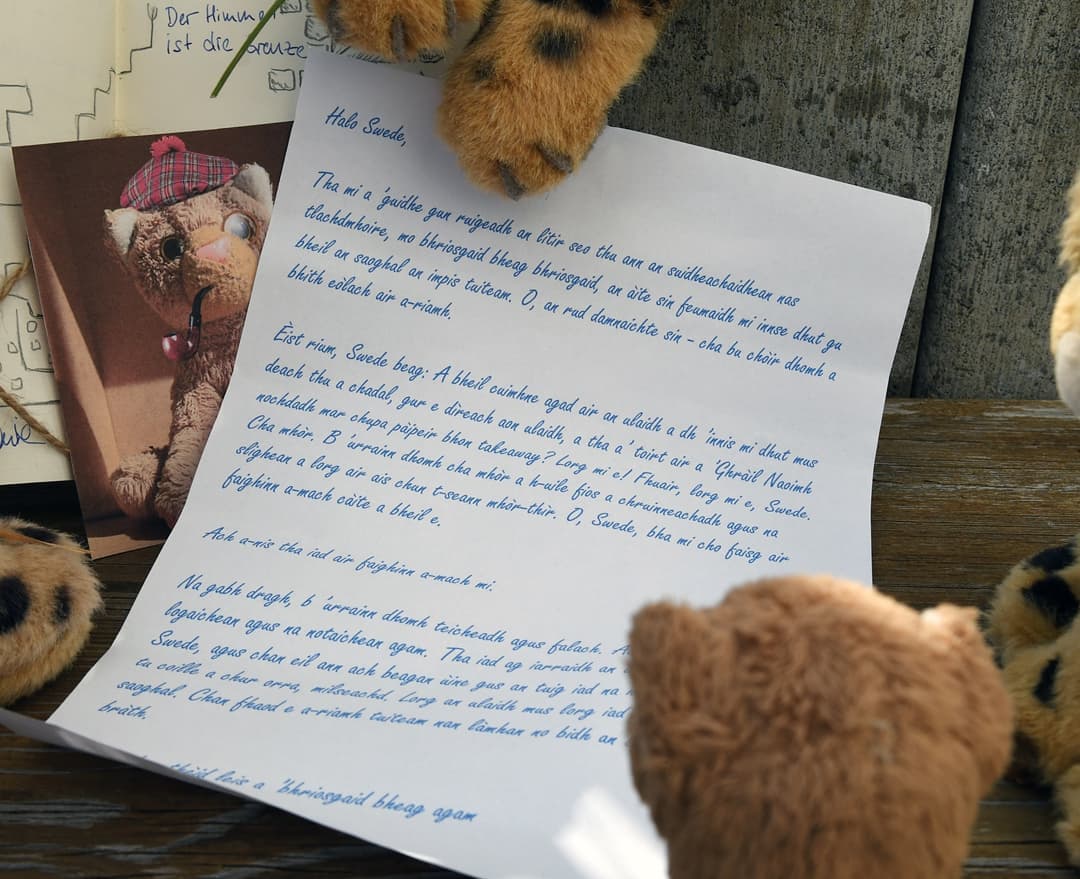 Der Himmel
ist die Grenze
Halo Swede,
Tha mi a 'guidhe gun ruigeadh an litir seo thu ann an suidheachaidhean nas
tlachdmhoire, mo bhriosgaid bheag bhriosgaid, an àite sin feumaidh mi innse dhut gu
bheil an saoghal an impis tuiteam. O, an rud damnaichte sin - cha bu chòir dhomh a
bhith eòlach air a-riamh.
Èist rium, Swede beag: A bheil cuimhne agad air an ulaidh a dh 'innis mi dhut mus
deach thu a chadal, gur e dìreach aon ulaidh, a tha a 'toirt air a 'Ghràil Naoimh
nochdadh mar chupa pàipeir bhon takeaway? Lorg mi e! Fhuair, lorg mi e, Swede.
Cha mhòr. B 'urrainn dhomh cha mhòr a h-uile fios a chruinneachadh agus na
slighean a lorg air ais chun t-seann mhòr-thìr. O, Swede, bha mi cho faisg air
faighinn a-mach càite a bheil e.
Ach a-nis tha iad air faighinn a-mach mi.
Na gabh dragh, b 'urrainn dhomh teicheadh agus falach.
logaichean agus na notaichean agam. Tha iad ag iarraidh an
Swede, agus chan eil ann ach beagan ùine gus an tuig iad na
cu coille a chur orra, milseachd. Lorg an ulaidh mus lorg iad
saoghal. Chan fhaod e a-riamh tuiteam nan làmhan no bidh an
bràth.
leis a 'bhriosgaid bheag agam